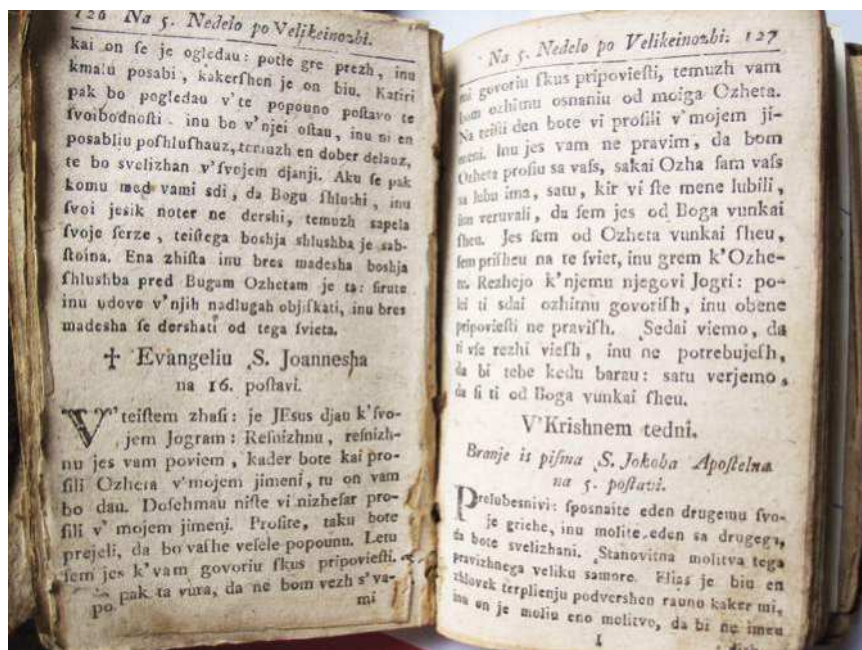 126 Na 5. Nedelo po Veljkeinozhi.
kai on ſe je ogledau: potle gre prezh, inu
kmalu posabi, kakerſhen je on biu. Katiri
pak bo pogledau v'te popouno poſtavo te
ſvoibodnoſti, inu bo v'njei oſtau, inu ni en
posabliu poſhluſhauz, temuzh en dober delauz,
te bo svelizhan v'ſvojem djanji. Aku ſe pak
komu med vami sdi, da Bogu ſhluzhi, inu
ſvoi jesik noter ne dershi, temuzh sapela
ſvoje ſerze, teiſtega boshja shlushba je sab-
ſtoina. Ena zhiſta inu bres madesha boshja
ſhlushba pred Bugam Ozhetam je ta: ſirute
inu udove v'njih nadlugah objiſkati, inu bres
madesha ſe dershati od tega ſvieta.
✝ Evangeliu S. Joannesha
na 16. poſtavi.
V'teiſtem zhaſi: je JEsus djau k'ſvo-
jem Jogram: Reſnizhnu, reſnizh-
nu jes vam poviem, kader bote kai pro-
ſili Ozheta v'mojem jimeni, tu on vam
bo dau. Doſchmau niſte vi nizheſar pro-
ſili v' mojem jimeni. Proſite, taku bote
prejeli, da bo vaſhe veſele popounu. Letu
ſem jes k'vam govoriu ſkus pripovieſti.
po pak ta vura, da ne bom vezh s'va-
mi
Na 5. Nedelo po Velikeinozhi. 127
mi govoriu ſkus pripovieſti, temuzh vam
bom ozhitnu osnaniu od moiga Ozheta.
Na teiſti den bote vi proſili v'mojem ji-
meni. Inu jes vam ne pravim, da bom
Ozheta proſiu sa vaſs, sakai Ozha ſam vaſs
sa lubu ima, satu, kir vi ſte mene lubili,
inu veruvali, da ſem jes od Boga vunkai
ſheu. Jes ſem od Ozheta vunkai ſheu,
ſem priſheu na te ſviet, inu grem k'Ozhe-
tu. Rezhejo k'njemu njegovi Jogri: po-
ki ti sdai ozhitnu govoriſh, inu obene
pripovieſti ne praviſh. Sedai viemo, da
ti vſe rezhi vieſh, inu ne potrebujeſh,
da bi tebe kedu barau: satu verjemo,
da ſi ti od Boga vunkai ſheu.
V'Krishnem tedni.
Branje is piſma S. Jokoba Apoſtelna
na 5. poſtavi.
Prelubesnivi: ſposnaite eden drugemu ſvo-
je griehe, inu molite eden sa drugega,
da bote svelizhani. Stanovitna molitva tega
pravizhnega veliku samore. Elias je biu en
zhlovek terplienju podvershen rauno kaker mi,
inu on je moliu eno molitvo, da bi ne imeu
I